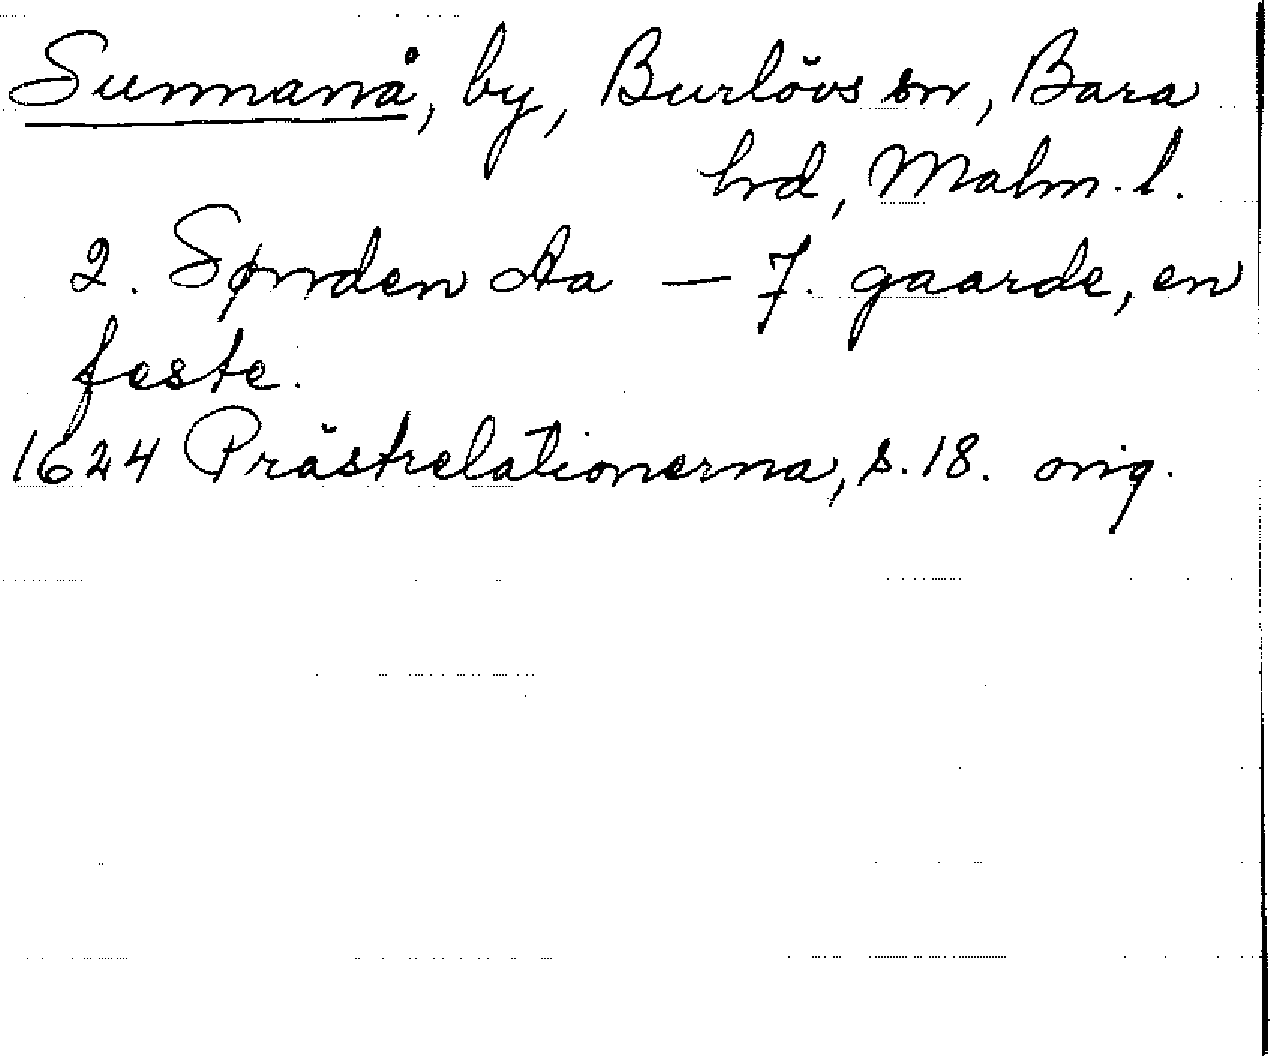 Sunnanå, by, Burlövs sn, Bara
hrd, Malm. l.
2. Sønden Aa — 7. gaarde, en
feste.
1624 Prästrelationerna, s. 18. orig.